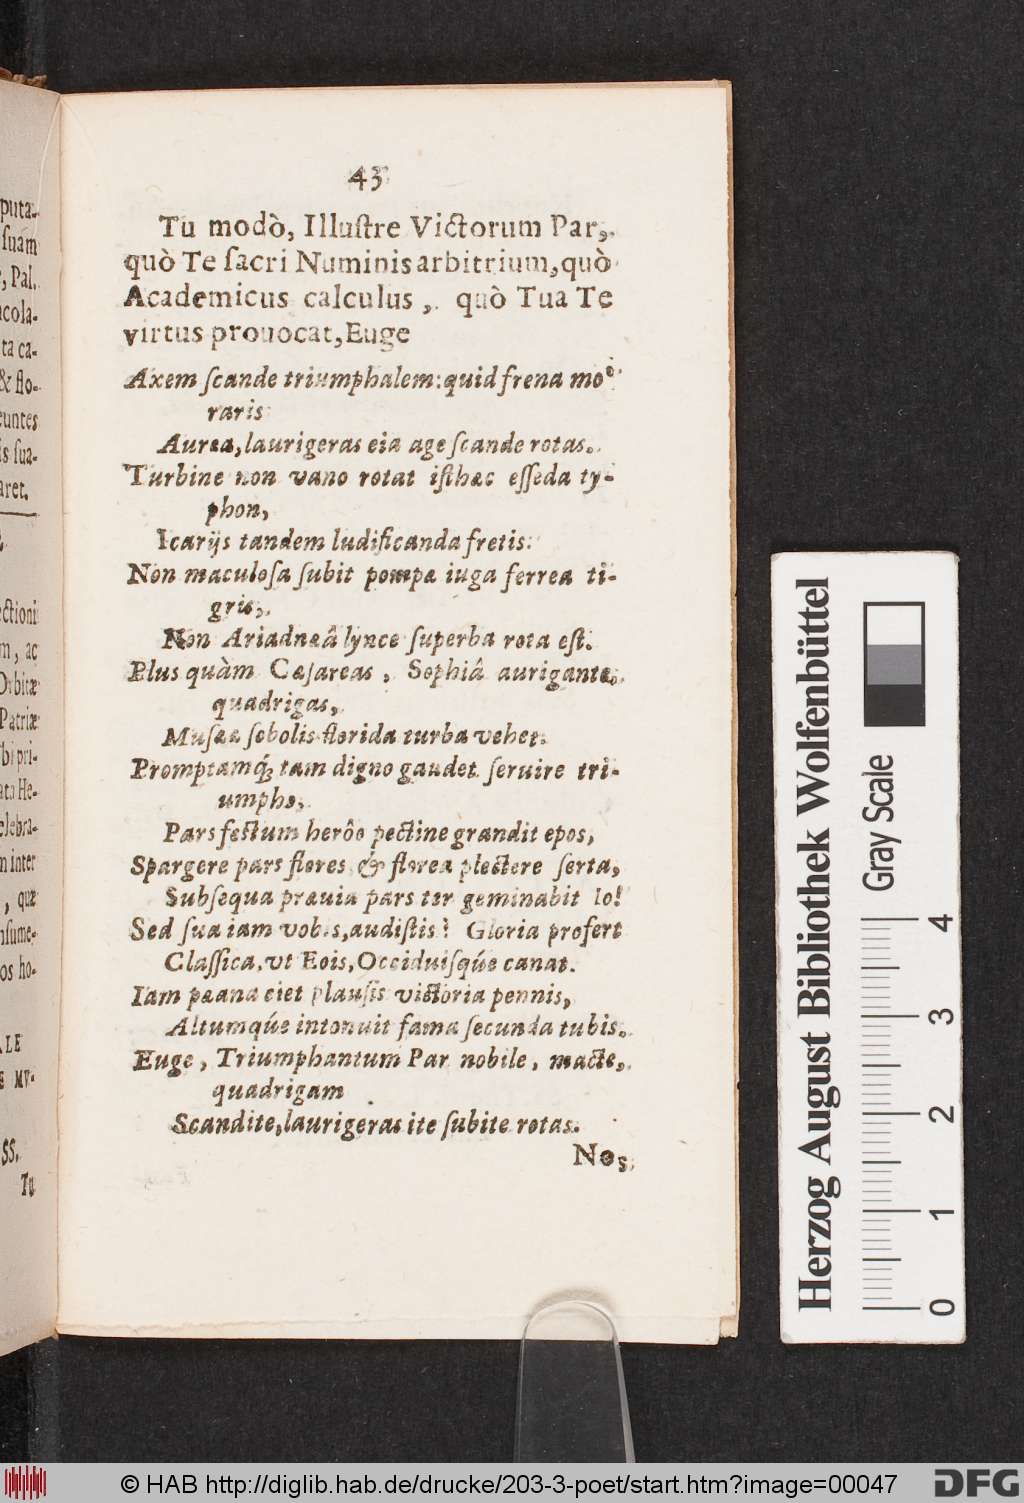 43
Tu modò, Illuſtre Victorum Par,
quò Te ſacri Numinis arbitrium, quò
Academicus calculus, quò Tua Te
virtus prouocat, Euge
Axem ſcande triumphalem: quid frena mo-
raris
Aurea, laurigeras eia age ſcande rotas.
Turbine non vano rotat iſthæc eſſeda ty-
phon,
Icarijs tandem ludificanda fretis.
Non maculoſa ſubit pompæ iuga ferrea ti-
gris,
Non Ariadnæâ lynce ſuperba rota eſt.
Plus quàm Cæſareas, Sophiâ aurigante,
quadrigas,
Muſææ ſobolis florida turba vehet.
Promptamq́; tam digno gaudet ſeruire tri-
umpho,
Pars feſtum herôo pectine grandit epos,
Spargere pars flores, & florea plectere ſerta,
Subſequa præuia pars ter geminabit Io!
Sed ſua iam vobis, audiſtis? Gloria profert
Claſſica, vt Eois, Occiduiſq́ue canat.
Iam pæana ciet plauſis victoria pennis,
Altumq́ue intonuit fama ſecunda tubis.
Euge, Triumphantum Par nobile, macte,
quadrigam
Scandite, laurigeras ite ſubite rotas.
Nos
puta-
ſuam
, Pal.
acola-
ta ca-
& flo-
euntes
is ſua-
aret.
ectioni
m, ac
Orbitæ
Patriæ
bi pri-
ata He-
celebra-
m inter
, quæ
nſume-
os ho-
ALE
E MV-
SS.
Tu
Herzog August Bibliothek Wolfenbüttel
Gray Scale
0 1 2 3 4
© HAB http://diglib.hab.de/drucke/203-3-poet/start.htm?image=00047
DFG